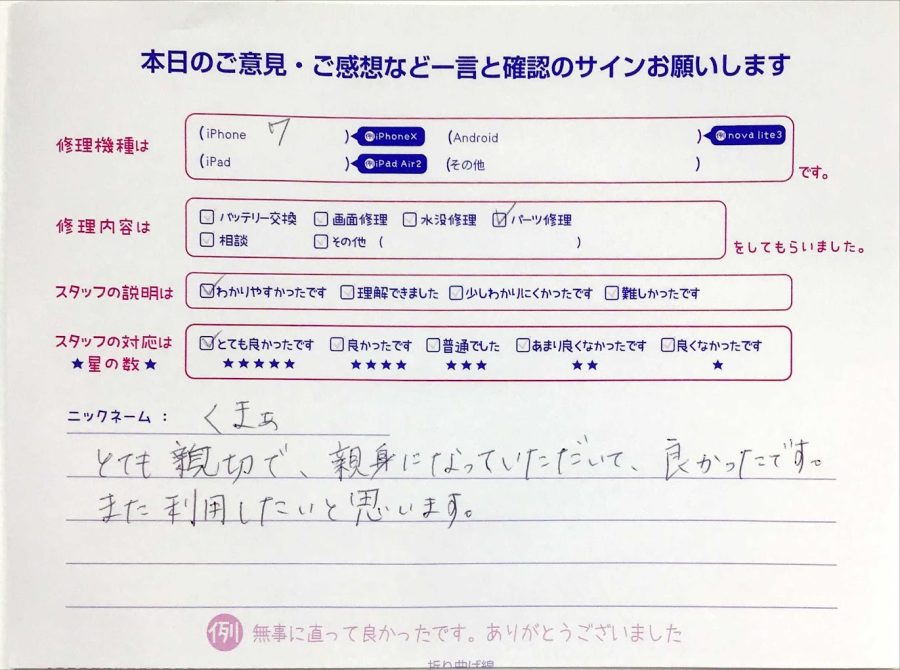 本日のご意見・ご感想など一言と確認のサインお願いします
修理機種は
(iPhone 7 ) 例iPhoneX (Android ) 例nova lite3
(iPad ) 例iPad Air2 (その他 ) です。
修理内容は
バッテリー交換 画面修理 水没修理 パーツ修理
相談 その他 ( ) をしてもらいました。
スタッフの説明は わかりやすかったです 理解できました 少しわかりにくかったです 難しかったです
スタッフの対応は とても良かったです 良かったです 普通でした あまり良くなかったです 良くなかったです
★星の数★ ★★★★★ ★★★★ ★★★ ★★ ★
ニックネーム: くまぁ
とても親切で、親身になっていただいて、良かったです。
また利用したいと思います。
例 無事に直って良かったです。ありがとうございました
折り曲げ線